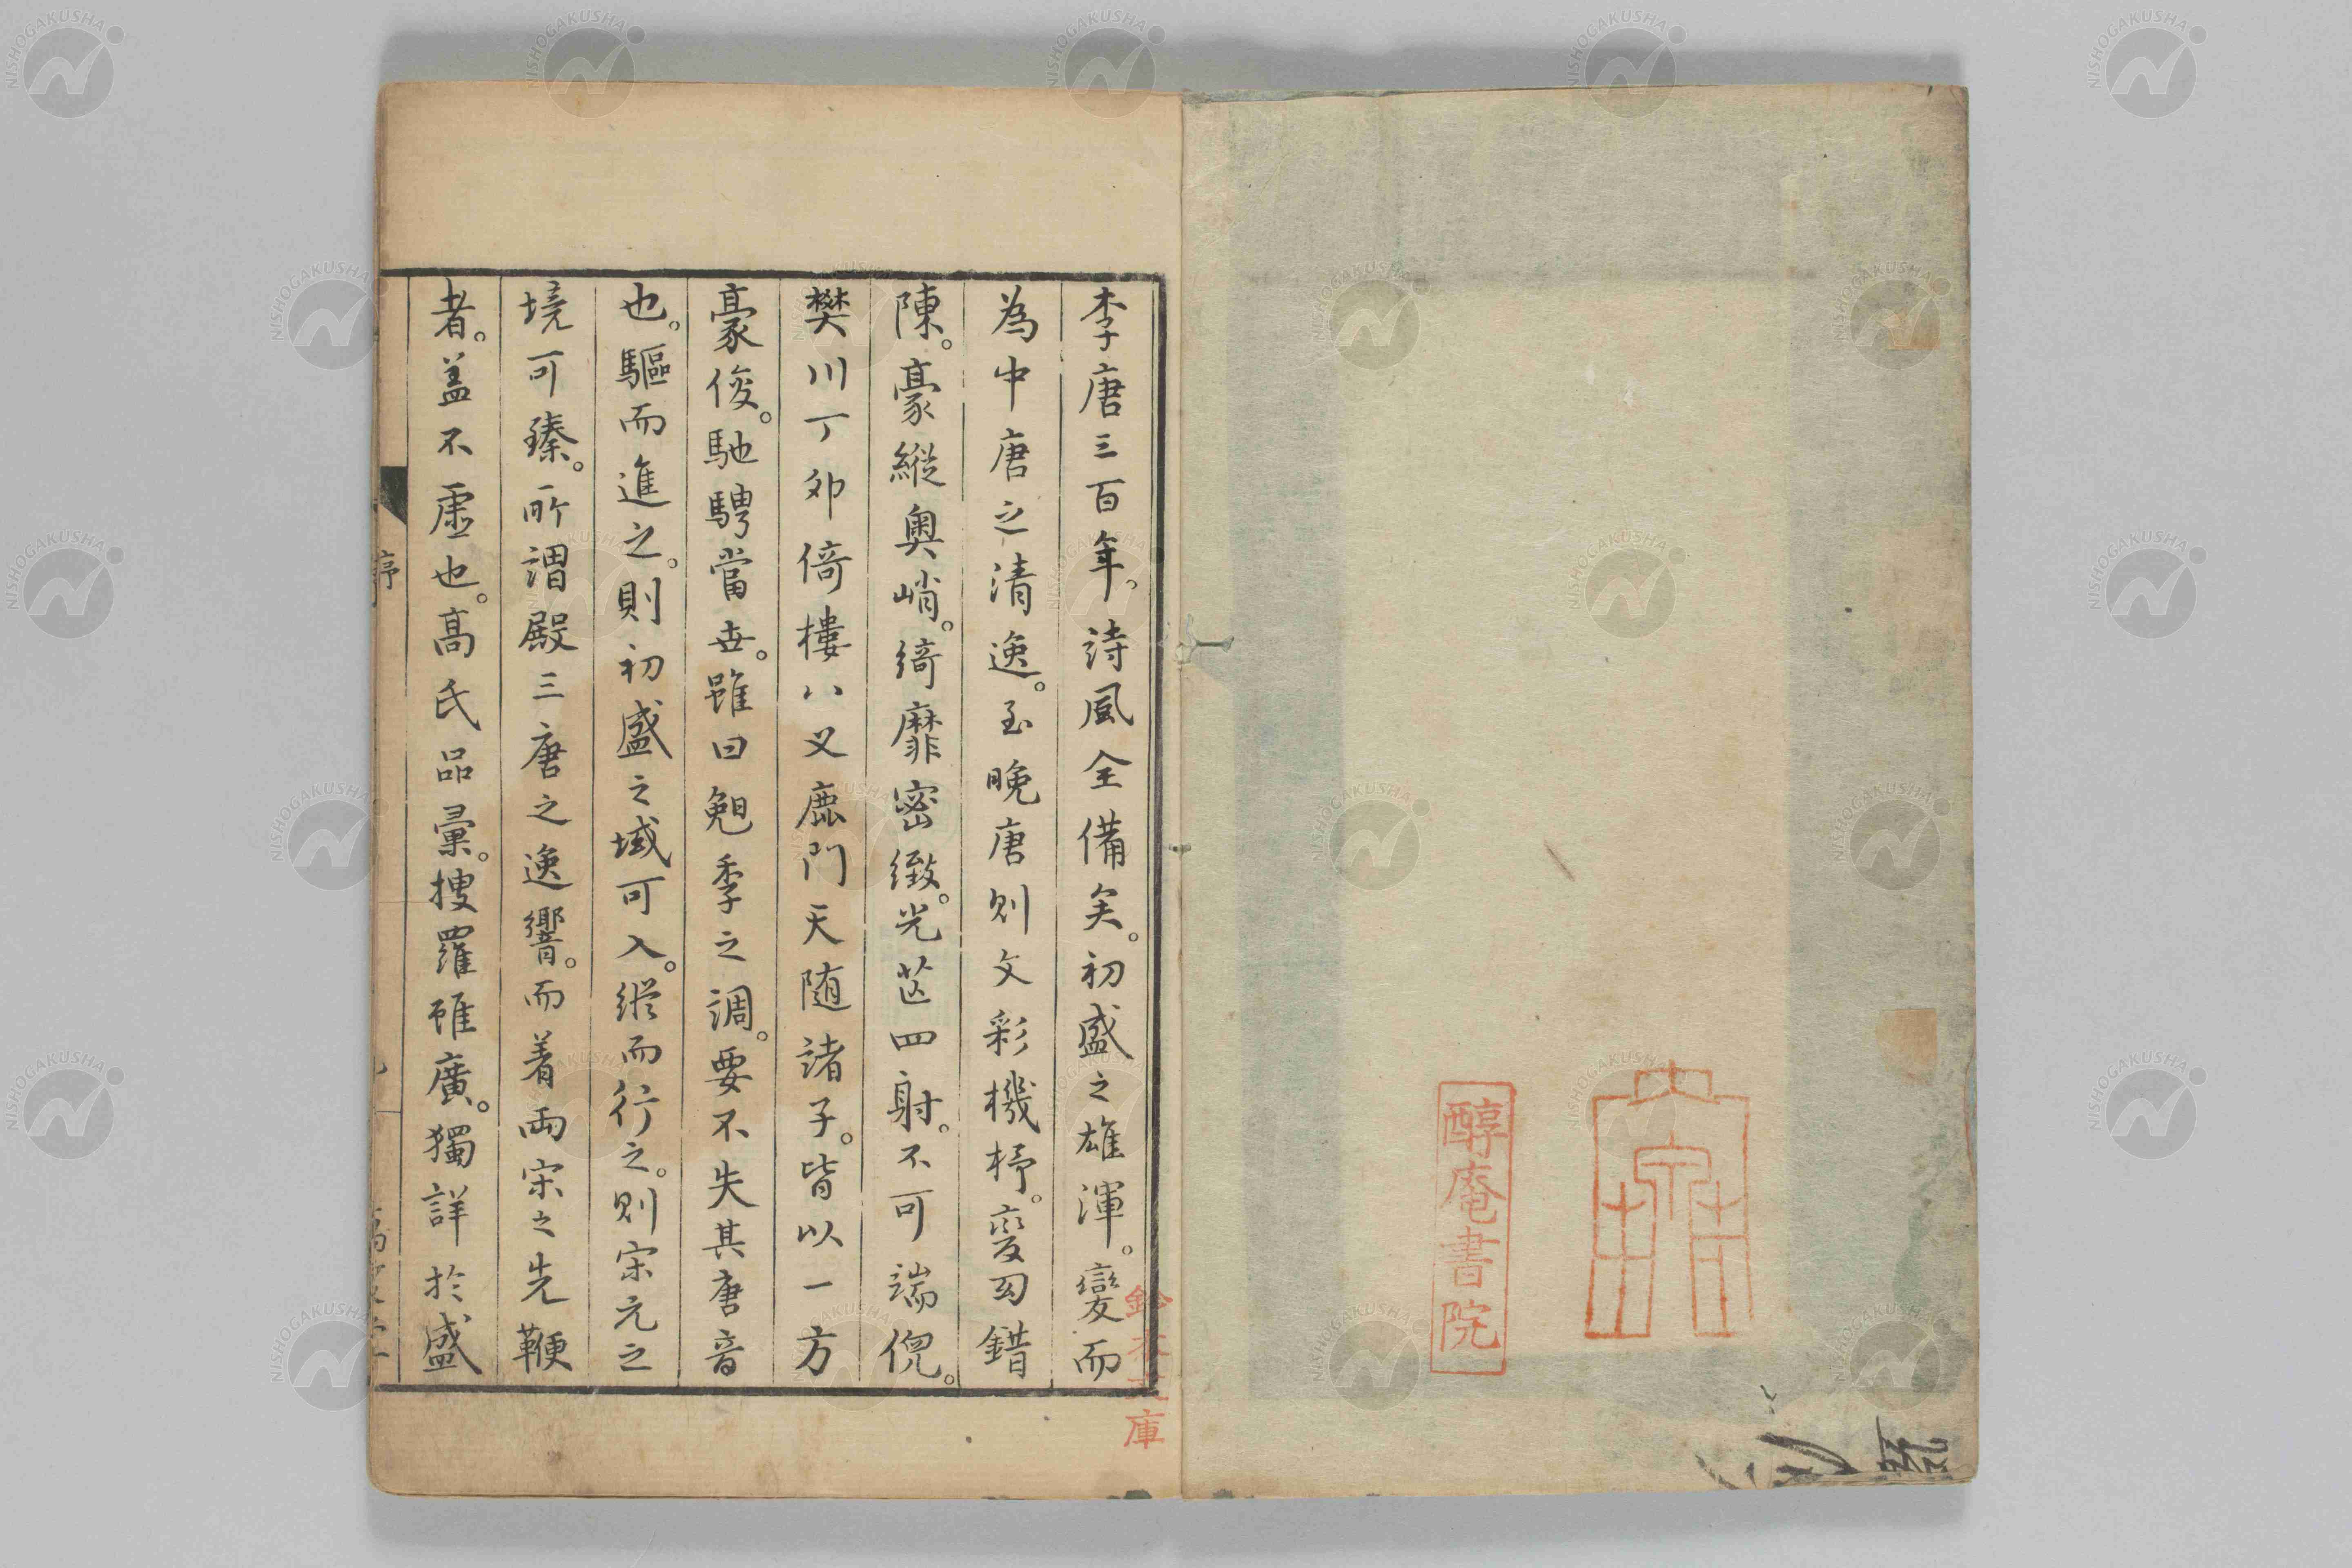 醇庵書院
李唐三百年。詩風全備矣。初盛之雄渾。變而
為中唐之清逸。至晚唐則文彩機杼。變幻錯
陳。豪縱奥峭。綺靡密緻。光芒四射。不可端倪。
樊川丁卯倚樓八叉鹿門天随諸子。皆以一方
豪俊。馳騁當世。雖曰晚季之調。要不失其唐音
也。驅而進之。則初盛之域可入。縱而行之。則宋元之
境可臻。所謂殿三唐之逸響。而着兩宋之先鞭
者。盖不虚也。高氏品彙。搜羅雖廣。獨詳於盛
序
庫
NISHOGAKUSHA